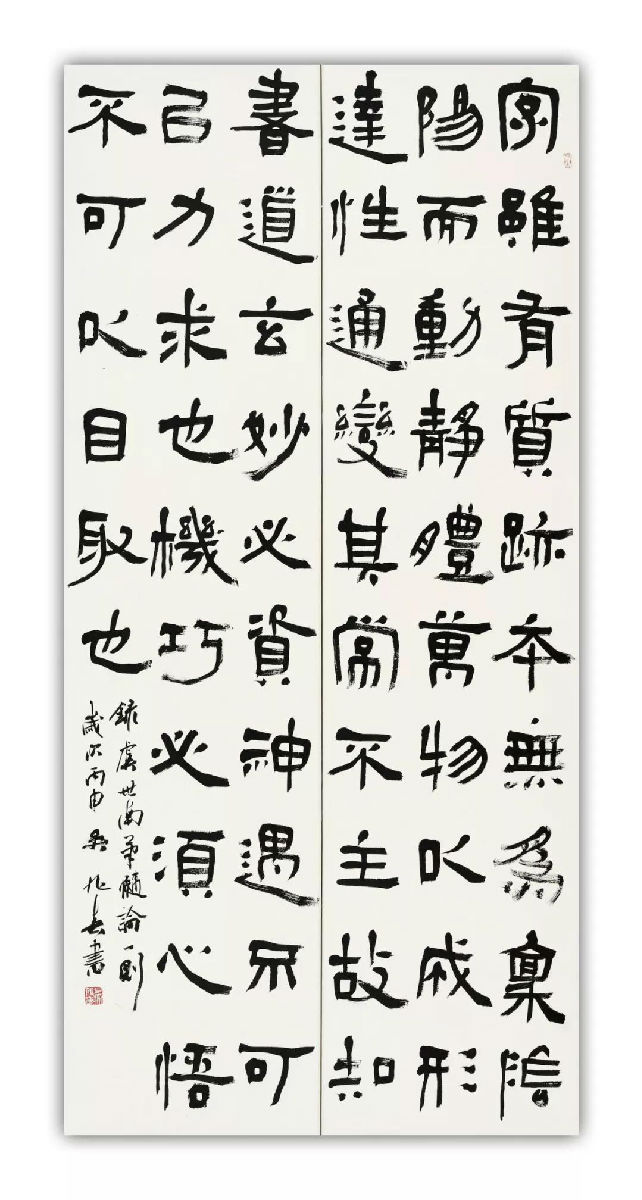 字雖有質跡本無為稟陰
陽而動靜體萬物以成形
達性通變其常不主故知
書道玄妙必資神遇不可
以力求也機巧必須心悟
不可以目取也
錄虞世南筆髓論一則
歲次丙申書